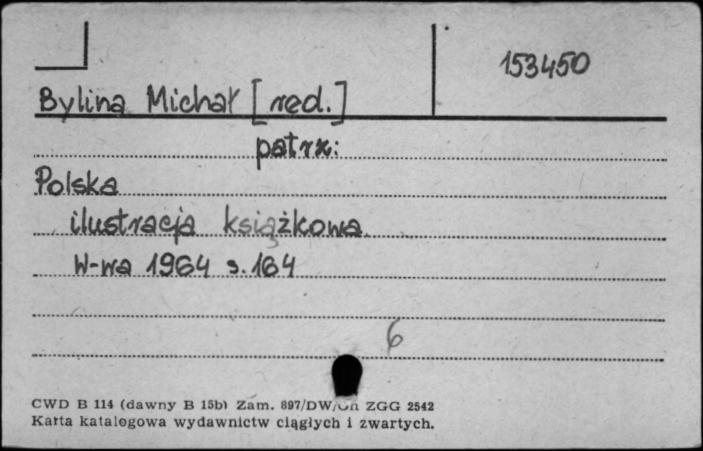 153450
Bylina Michał [red.]
patrz:
Polska
ilustracja książkowa
W-wa 1964 s. 164
6
CWD B 114 (dawny B 15b) Zam. 897/DW/ ZGG 2542
Karta katalogowa wydawnictw ciągłych i zwartych.